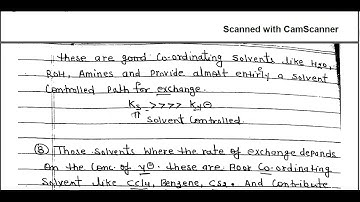 Scanned with CamScanner
these are good Co-ordinating Solvents like H2O,
ROH, Amines and Provide almost entirly a Solvent
Controlled Path for exchange.
Ks >>>> Ky⊖
Solvent Controlled.
(B) Those Solvents where the rate of exchange depends
on the Conc. of y⊖. these are Poor Co-ordinating
Solvent like CCl4, Benzene, CS2. And Contribute